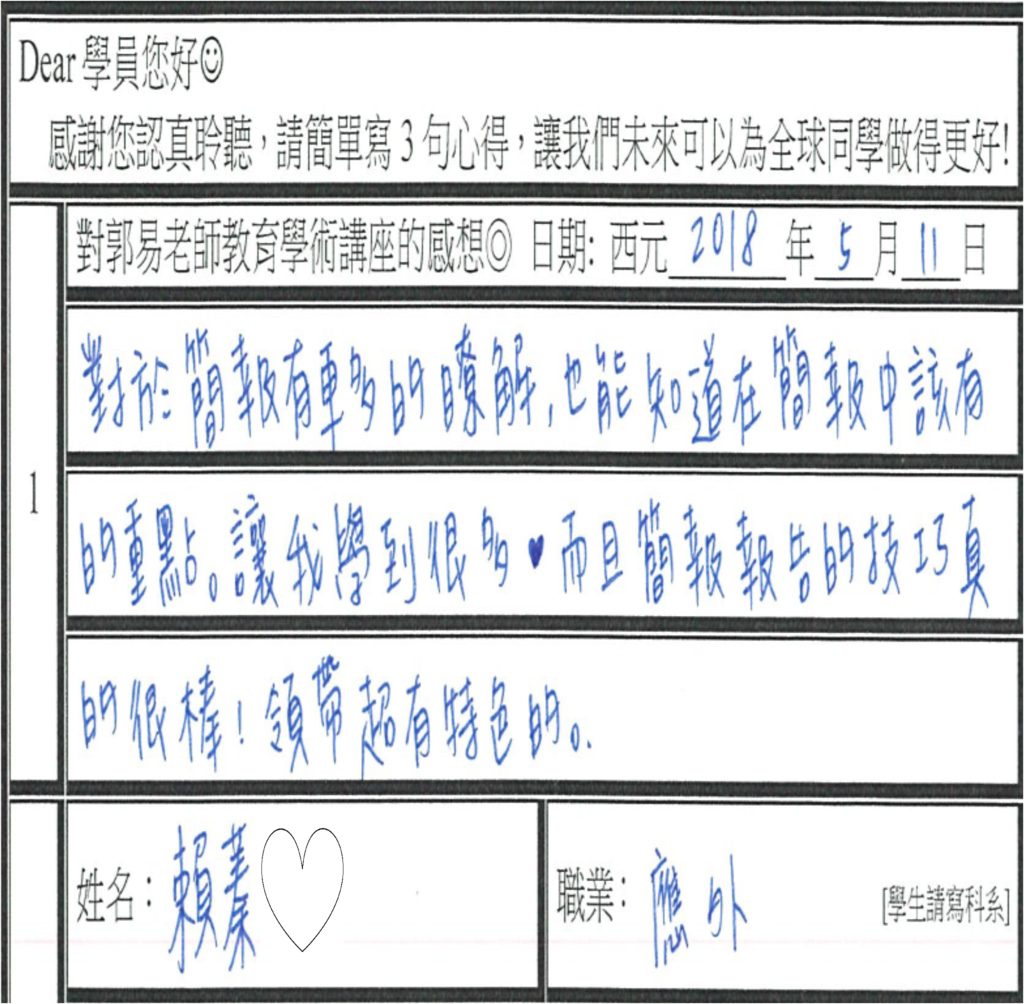 Dear 學員您好☺
感謝您認真聆聽，請簡單寫 3 句心得，讓我們未來可以為全球同學做得更好!
對郭易老師教育學術講座的感想◎ 日期: 西元2018年5月11日
1
對於簡報有更多的瞭解,也能知道在簡報中該有
的重點。讓我學到很多♥而且簡報報告的技巧真
的很棒!領帶超有特色的。
姓名：賴蓁♡
職業：應外 [學生請寫科系]